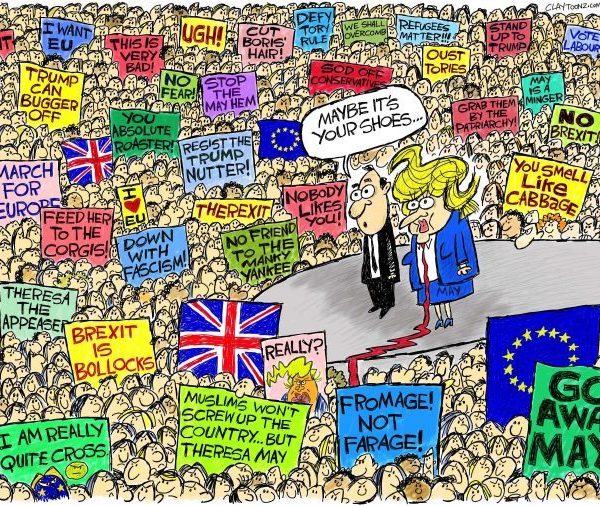 CLAYTOONZ.COM
I WANT
EU
THIS IS
VERY
BAD!
UGH!
CUT
BORIS'
HAIR!
DEFY
TORY
RULE
WE SHALL
OVERCOMB
REFUGEES
MATTER!!!
STAND
UP TO
TRUMP
VOTE
LABOUR
OUST
TORIES
TRUMP
CAN
BUGGER
OFF
NO
FEAR!
STOP
THE
MAY HEM
SOD OFF
CONSERVATIVES
MAY
IS A
MINGER
GRAB THEM
BY THE
PATRIARCHY!
NO
BREXIT!
MAYBE IT'S
YOUR SHOES...
YOU
ABSOLUTE
ROASTER!
RESIST THE
TRUMP
NUTTER!
YOU SMELL
LIKE
CABBAGE
MARCH
FOR
EUROPE
I
EU
THEREXIT
NOBODY
LIKES
YOU!
FEED HER
TO THE
CORGIS!
DOWN
WITH
FASCISM!
NO FRIEND
TO THE
MANKY
YANKEE
MAY
THERESA
THE
APPEASER
BREXIT
IS
BOLLOCKS
REALLY?
MUSLIMS WON'T
SCREW UP THE
COUNTRY...BUT
THERESA MAY
FROMAGE!
NOT
FARAGE!
GO
AWAY
MAY
I AM REALLY
QUITE CROSS.